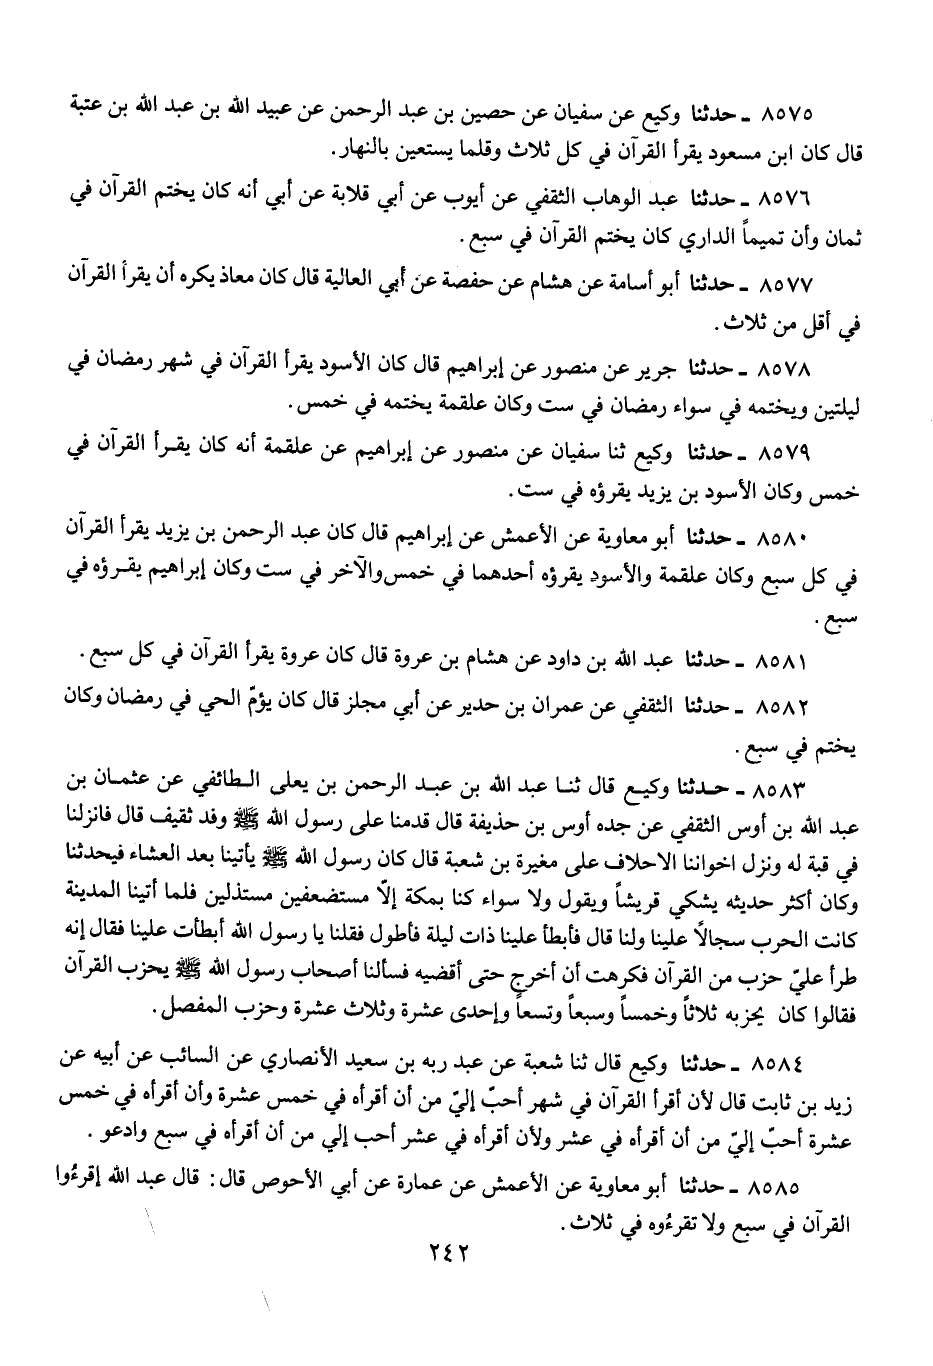 ٨٥٧٥ ـ حدثنا وكيع عن سفيان عن حصين بن عبد الرحمن عن عبيد الله بن عبد الله بن عتبة
قال كان ابن مسعود يقرأ القرآن في كل ثلاث وقلما يستعين بالنهار.
٨٥٧٦ ـ حدثنا عبد الوهاب الثقفي عن أيوب عن أبي قلابة عن أبي أنه كان يختم القرآن في
ثمان وأن تميماً الداري كان يختم القرآن في سبع.
٨٥٧٧ ـ حدثنا أبو أسامة عن هشام عن حفصة عن أبي العالية قال كان معاذ يكره أن يقرأ القرآن
في أقل من ثلاث.
٨٥٧٨ ـ حدثنا جرير عن منصور عن إبراهيم قال كان الأسود يقرأ القرآن في شهر رمضان في
ليلتين ويختمه في سواء رمضان في ست وكان علقمة يختمه في خمس.
٨٥٧٩ ـ حدثنا وكيع ثنا سفيان عن منصور عن إبراهيم عن علقمة أنه كان يقرأ القرآن في
خمس وكان الأسود بن يزيد يقرؤه في ست.
٨٥٨٠ ـ حدثنا أبو معاوية عن الأعمش عن إبراهيم قال كان عبد الرحمن بن يزيد يقرأ القرآن
في كل سبع وكان علقمة والأسود يقرؤه أحدهما في خمس والآخر في ست وكان إبراهيم يقرؤه في
سبع.
٨٥٨١ ـ حدثنا عبد الله بن داود عن هشام بن عروة قال كان عروة يقرأ القرآن في كل سبع.
٨٥٨٢ ـ حدثنا الثقفي عن عمران بن حدير عن أبي مجلز قال كان يؤمّ الحي في رمضان وكان
يختم في سبع.
٨٥٨٣ ـ حدثنا وكيع قال ثنا عبد الله بن عبد الرحمن بن يعلى الطائفي عن عثمان بن
عبد الله بن أوس الثقفي عن جده أوس بن حذيفة قال قدمنا على رسول الله ﷺ وفد ثقيف قال فانزلنا
في قبة له ونزل اخواننا الاحلاف على مغيرة بن شعبة قال كان رسول الله ﷺ يأتينا بعد العشاء فيحدثنا
وكان أكثر حديثه يشكي قريشاً ويقول ولا سواء كنا بمكة إلاّ مستضعفين مستذلين فلما أتينا المدينة
كانت الحرب سجالاً علينا ولنا قال فأبطأ علينا ذات ليلة فأطول فقلنا يا رسول الله أبطأت علينا فقال إنه
طرأ عليّ حزب من القرآن فكرهت أن أخرج حتى أقضيه فسألنا أصحاب رسول الله ﷺ يحزب القرآن
فقالوا كان يحزبه ثلاثاً وخمساً وسبعاً وتسعاً وإحدى عشرة وثلاث عشرة وحزب المفصل.
٨٥٨٤ ـ حدثنا وكيع قال ثنا شعبة عن عبد ربه بن سعيد الأنصاري عن السائب عن أبيه عن
زيد بن ثابت قال لأن أقرأ القرآن في شهر أحبّ إليّ من أن أقرأه في خمس عشرة وأن أقرأه في خمس
عشرة أحبّ إليّ من أن أقرأه في عشر ولأن أقرأه في عشر أحب إلي من أن أقرأه في سبع وادعو.
٨٥٨٥ ـ حدثنا أبو معاوية عن الأعمش عن عمارة عن أبي الأحوص قال: قال عبد الله إقرءُوا
القرآن في سبع ولا تقرءُوه في ثلاث.
٢٤٢